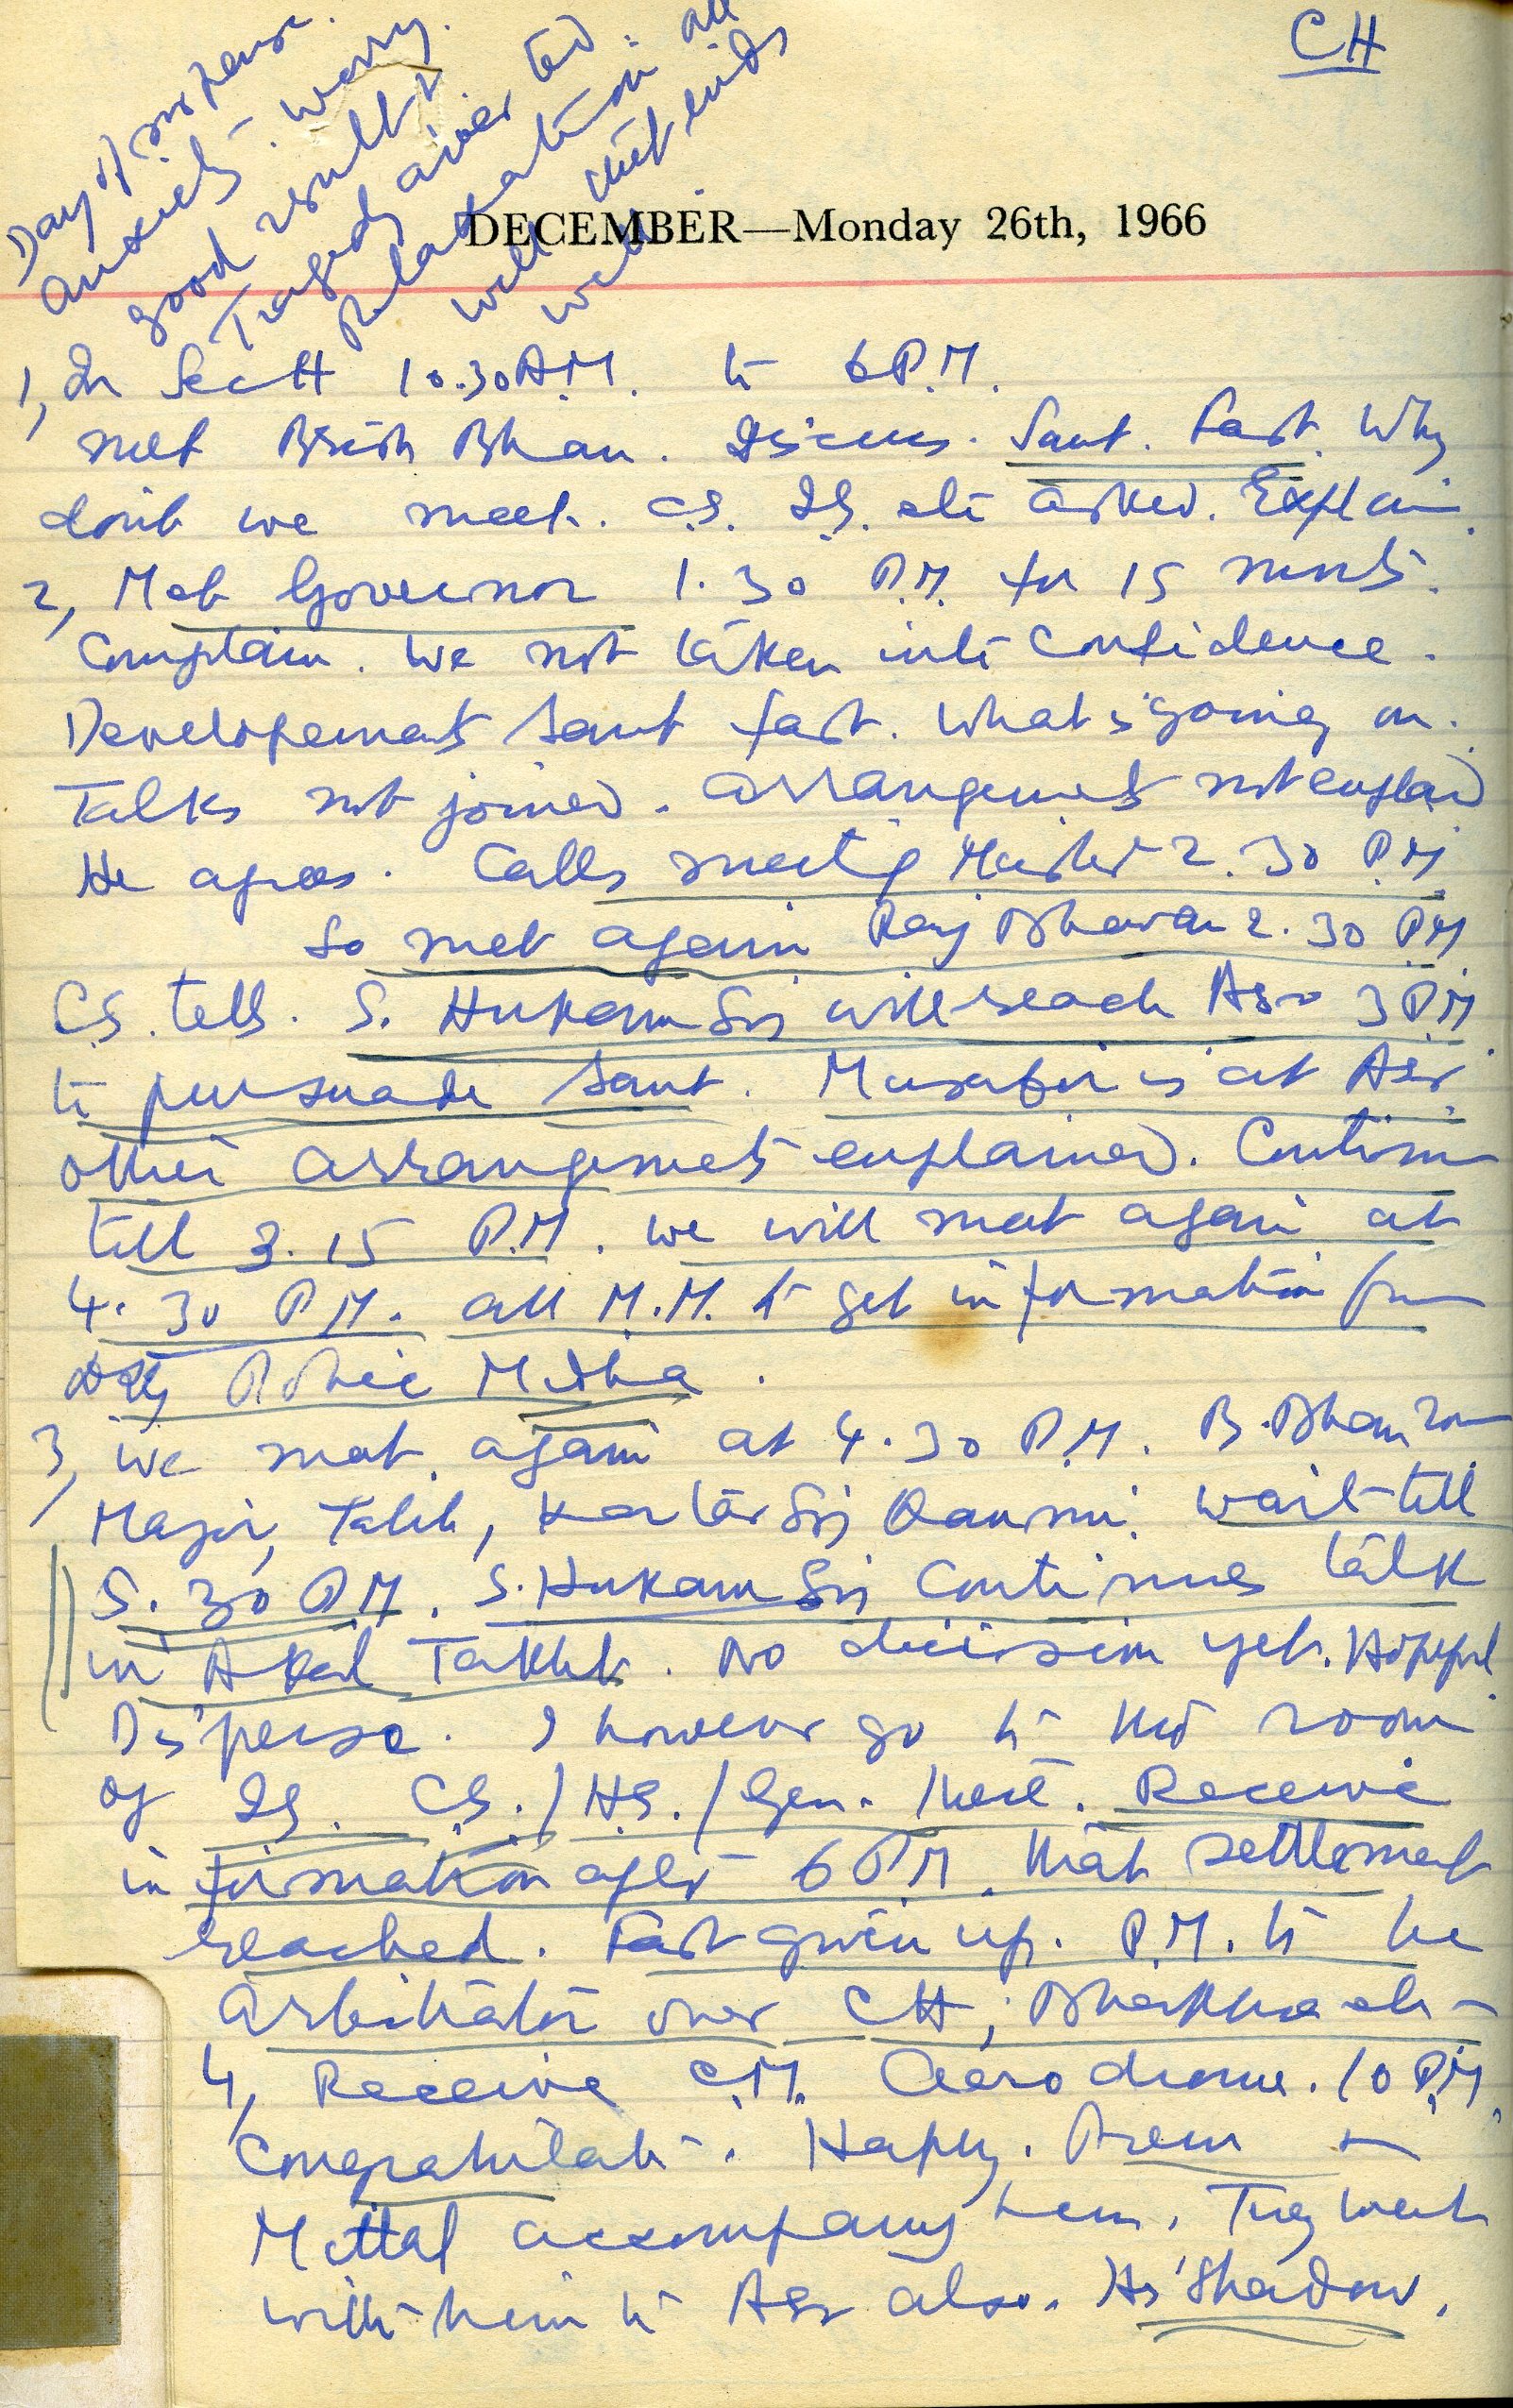 CH
Day of suspense.
anxiety. worry.
good result
Tragedy averted. all
Relaxation
well that ends
well.
DECEMBER—Monday 26th, 1966
1, In Sectt 10.30 A.M. to 6 P.M.
met Brish Bhan. Discuss. Sant. Fast. Why
don't we meet. C.S. IG. etc asked. Explain.
2, Met Governor 1.30 P.M. for 15 minuts.
Complain. We not taken into Confidence.
Developemants Sant fast. What is going on.
Talks not joined. arrangements not explaid
He agrees. Calls meetig 2.30 P.M.
So met again Raj Bhavan 2.30 PM
C.S. tells. S. Hukam Sing will reach Asr 3 P.M.
to pursuade Sant. Musafir is at Asr.
other arrangemets explained. Continu
till 3.15 P.M. we will meet again at
4.30 P.M. all M.M. to get information from
Police
3, we met again at 4.30 P.M. B. Bhan room
Major, Talib, Kartar Sing wait till
5.30 PM. S. Hukam Sing Continues talk
in Akal Takht. No decision yet. Hopeful
Disperse. I however go to the room
of IG. CS./HS./Gen. there. Receive
information after 6 PM. that settlement
reached. Fast given up. P.M. to be
arbitrator over CH, Bhakhra etc
4, Receive C.M. Aerodrome. 10 P.M.
Congratulate. Happy. Prem
Mittal accompany him. They went
with him to Asr also. His 'Shadow.